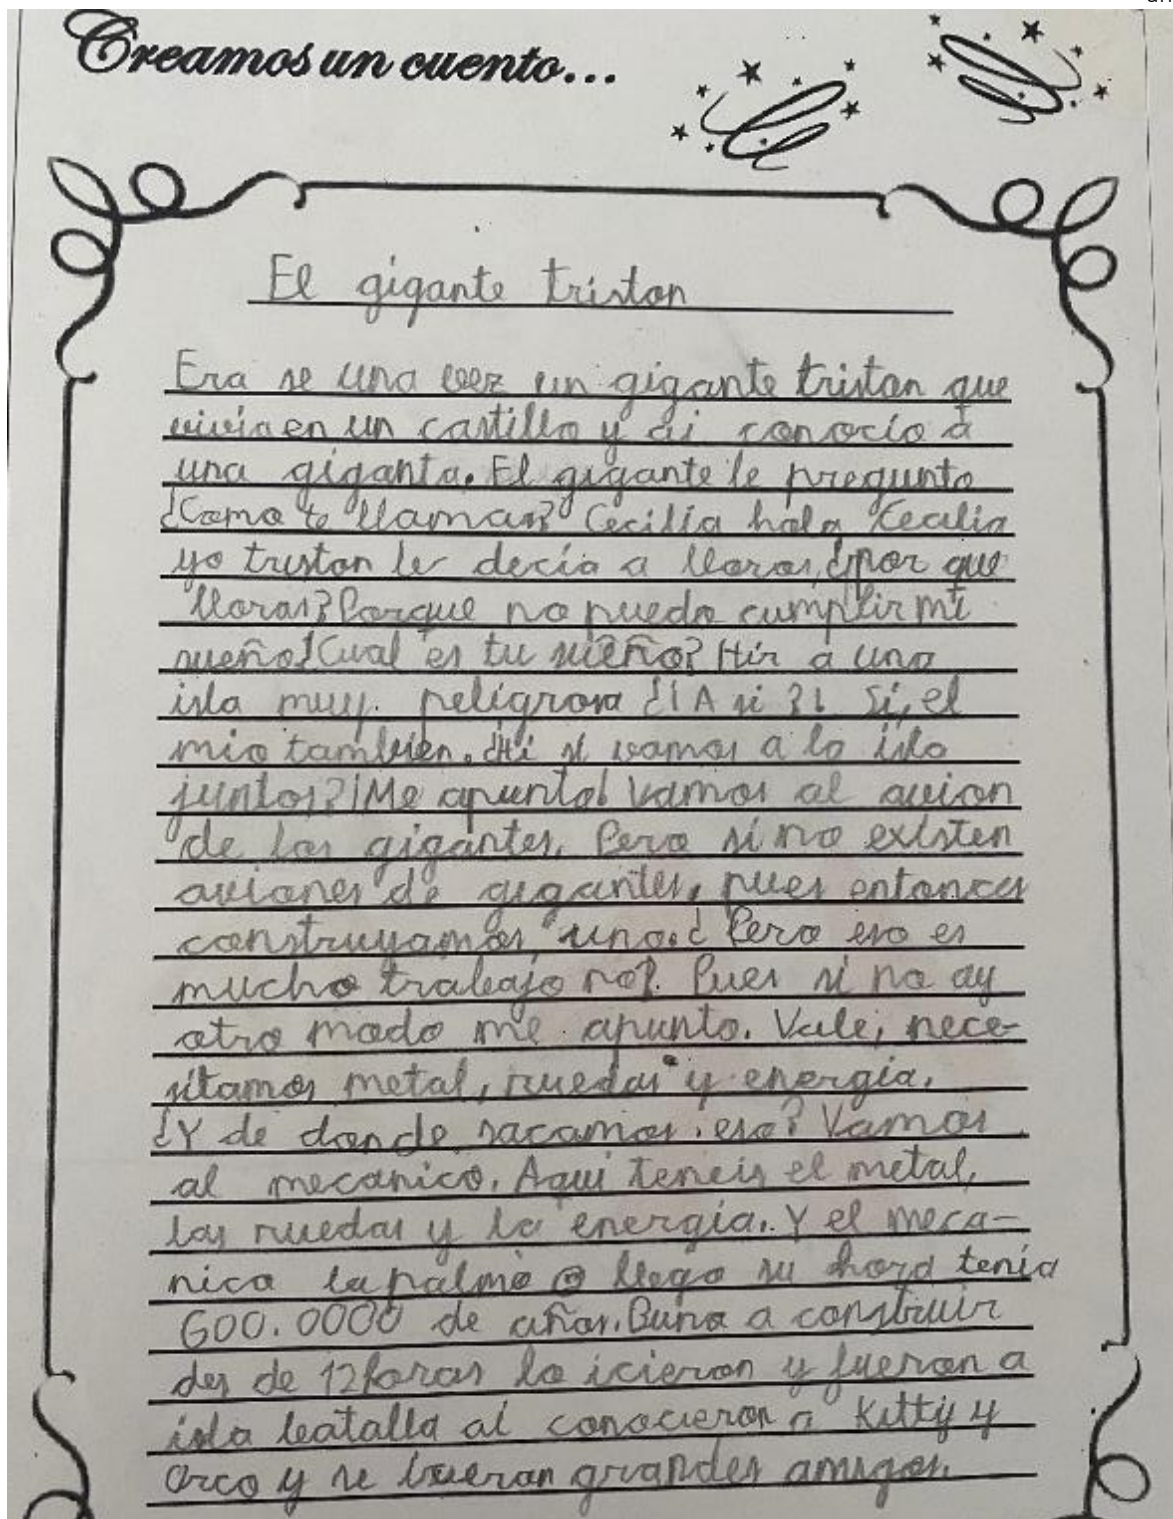 Creamos un cuento...
El gigante triston
Era se una vez un gigante triston que
vivía en un castillo y ai conocío a
una giganta. El gigante le pregunto
¿Como te llamas? Cecilia hola Cecilia
yo triston le decía a lloros, ¿por que
lloras? Porque no puedo cumplir mi
sueño ¿Cual es tu sueño? Hir a una
isla muy peligrosa ¿¡A si?! Si, el
mio tambien. ¿Hi si vamos a la isla
juntos? ¡Me apunto! Vamos al avion
de los gigantes. Pero si no existen
aviones de gigantes, pues entonces
construyamos uno. ¿Pero eso es
mucho trabajo no?. Pues si no ay
otro modo me apunto. Vale, nece-
sitamos metal, ruedas y energía.
¿Y de donde sacamos eso? Vamos
al mecanico. Aqui teneis el metal,
las ruedas y la energía. Y el meca-
nico la palmo llego su hora tenía
600.0000 de años. Buno a construir
des de 12 horas lo icieron y fueron a
isla batalla aí conocieron a Kitty y
Orco y se hueran grandes amigos.